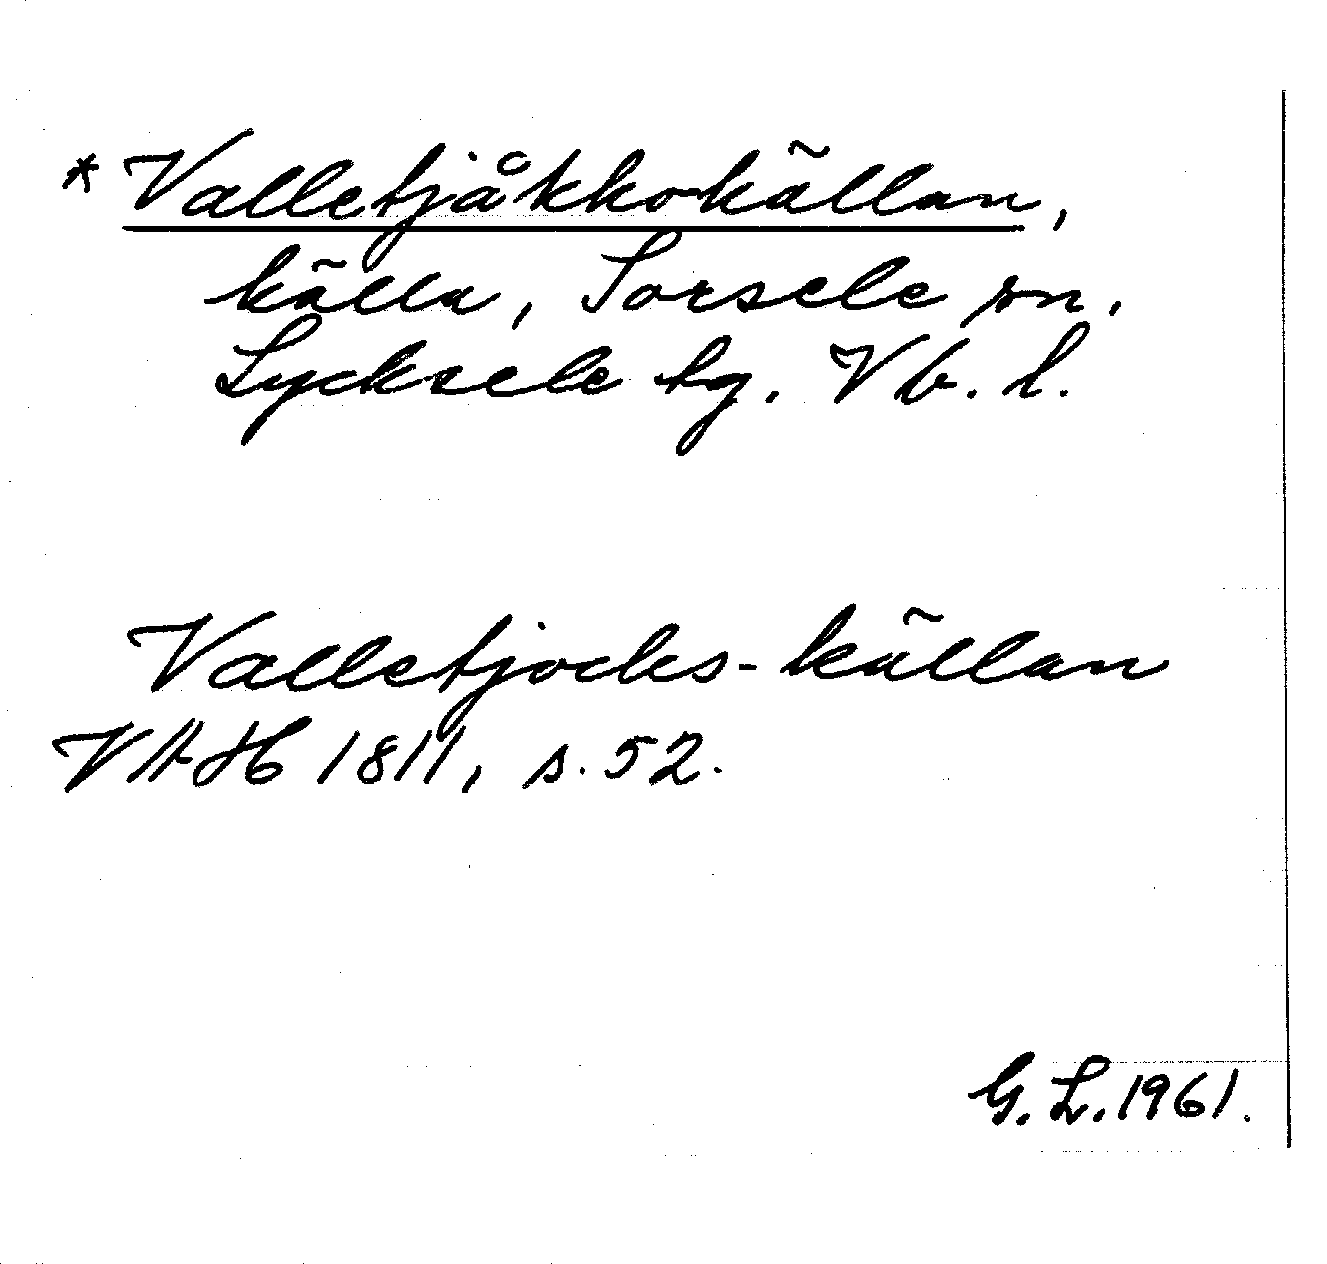 * Valletjåkkokällan,
källa, Sorsele sn.
Lycksele tg. Vb. l.
Valletjocks-källan
VAH 1811, s. 52.
G. L. 1961.